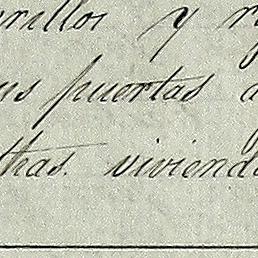 rillos y
us puertas
thas. vivienda